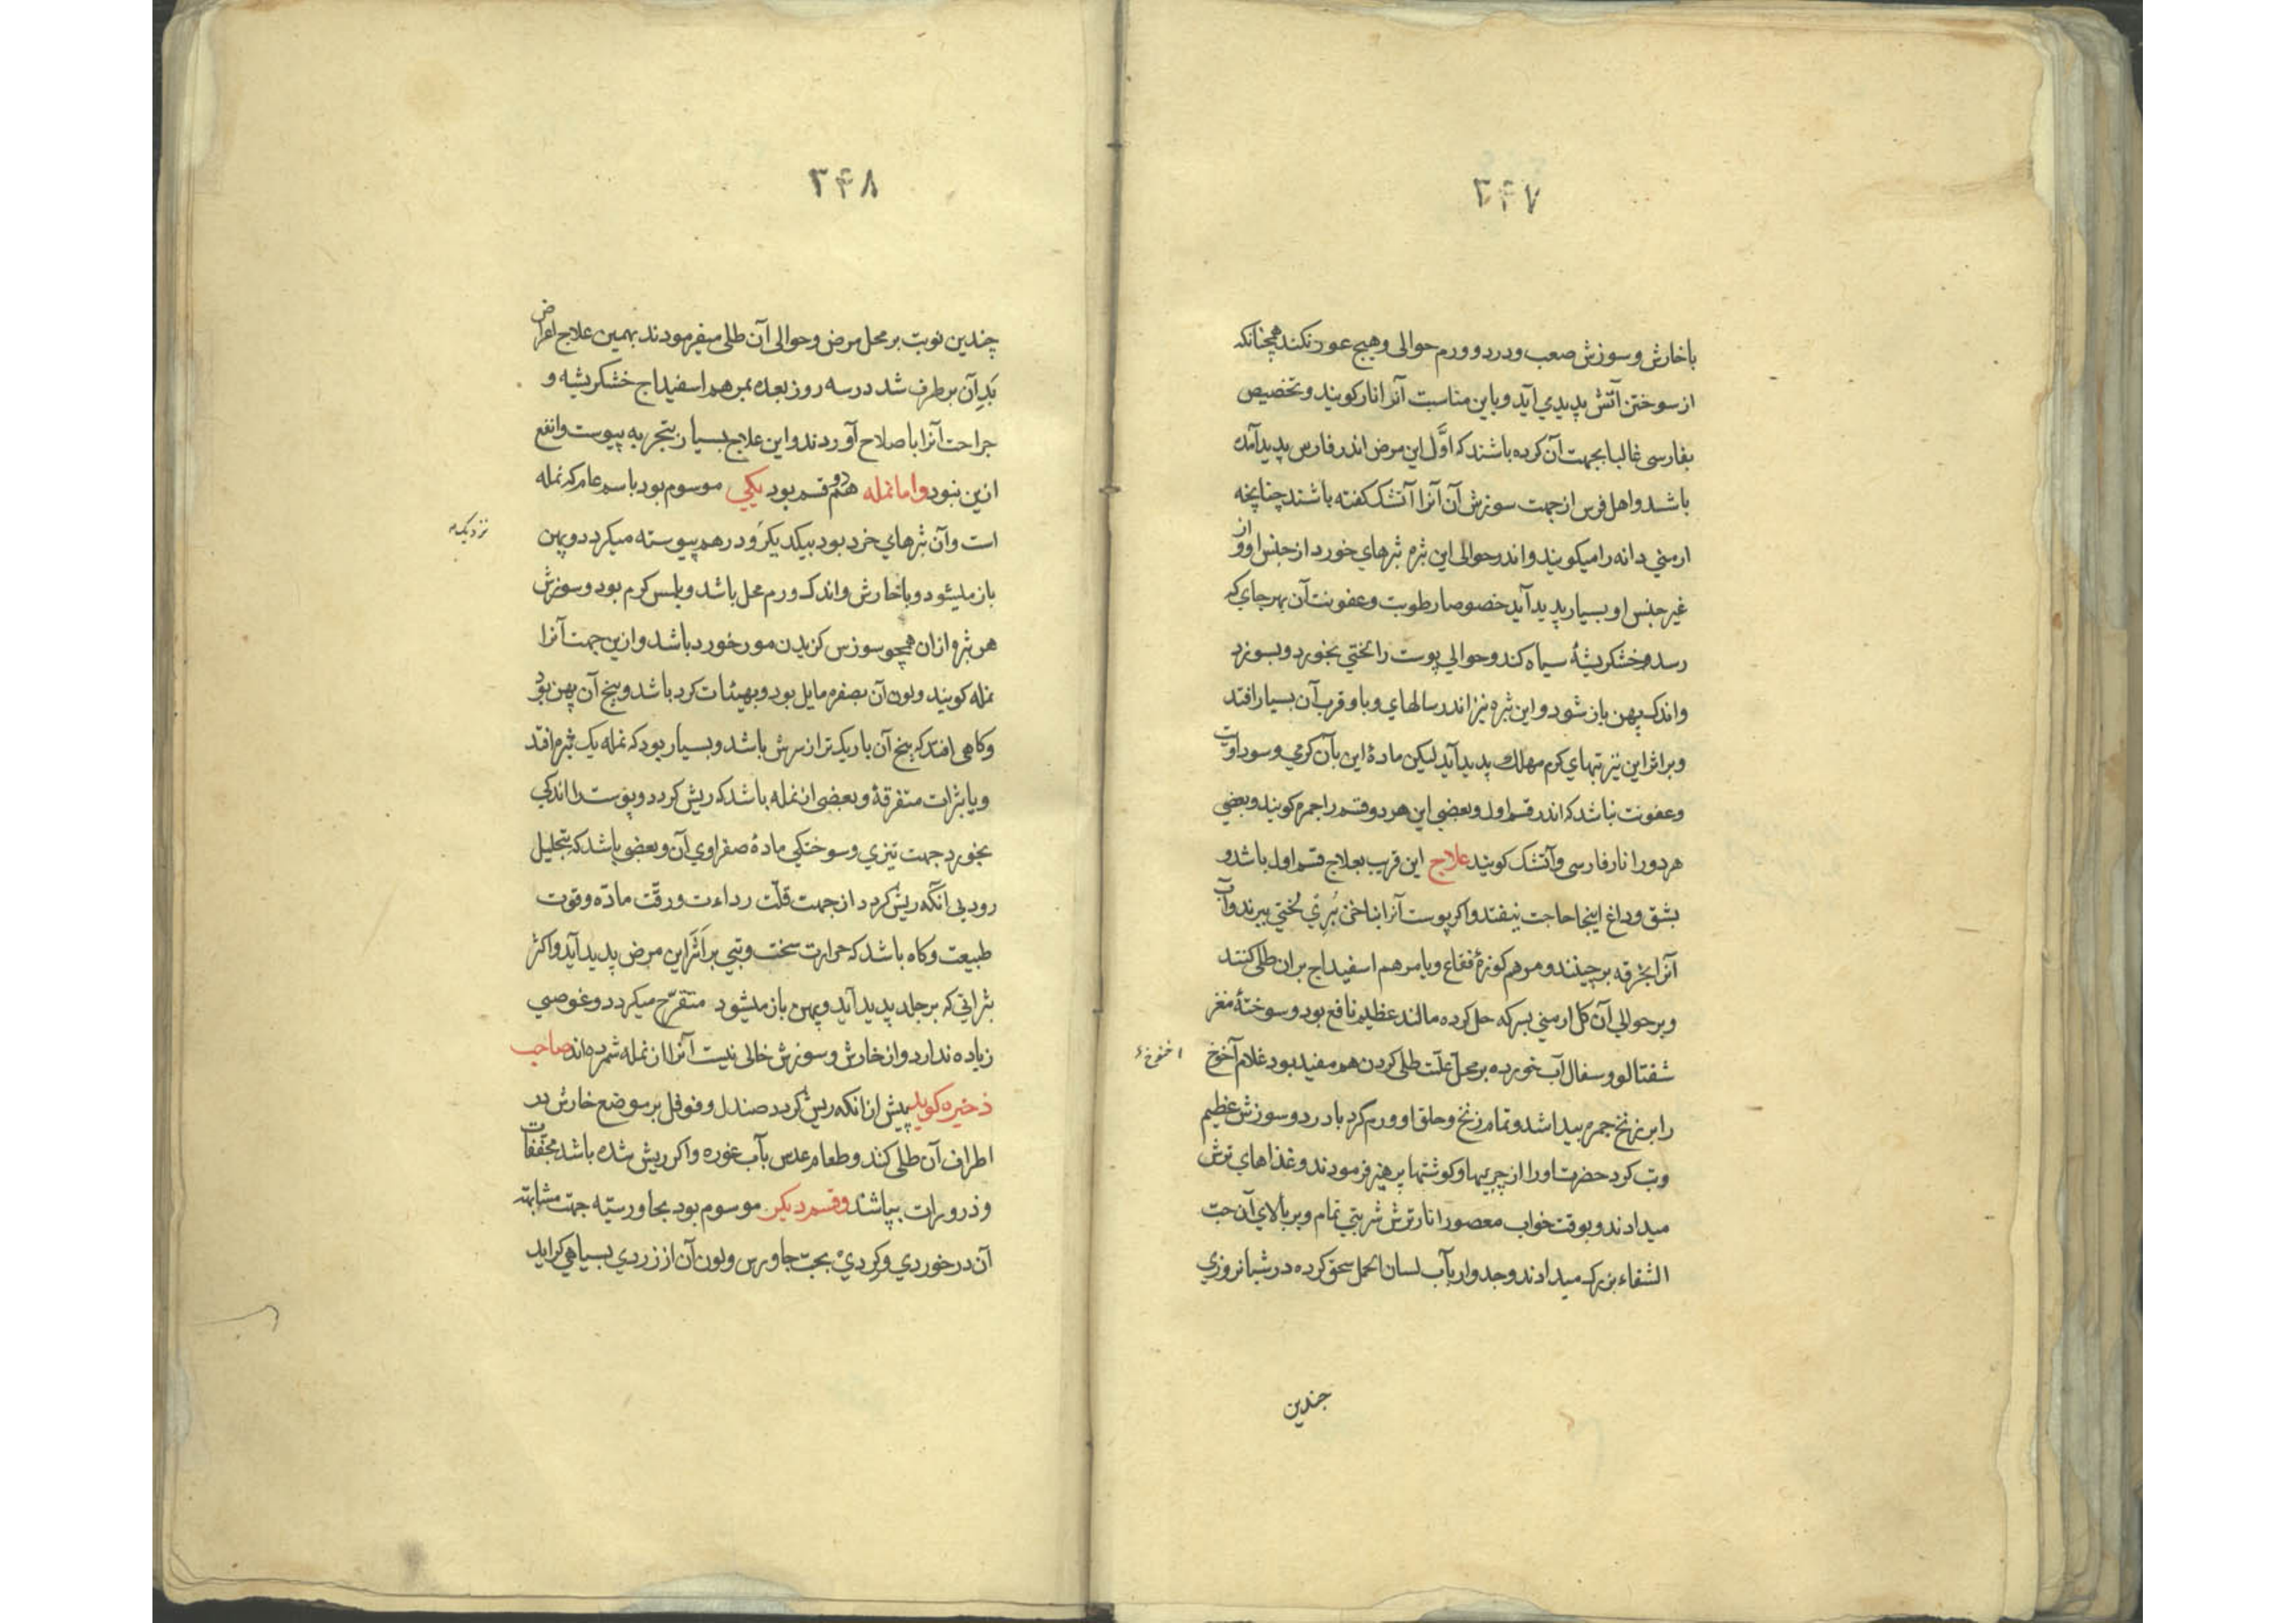 ۳۴۷
با خارش و سوزش صعب و درد و ورم حوالی و هیچ عود نکند همچنانکه
از سوختن آتش پدیدمی آید و باین مناسبت آنرا نار کویند و تخصیص
بفارسی غالبا بجهت آن کرده باشند که اوَّل این مرض اندر فارس پدید آمده
باشد و اهل فرس از جهت سوزش آن آنرا آتشک کفته باشند چنانچه
ارمنی دانه را میکویند و اندر حوالی این بثره بثرهای خورد از جنس او و از
غیر جنس او بسیار پدید آید خصوصا رطوبت و عفونت آن بهر جای که
رسد و خشکریشهٔ سیاه کند و حوالی پوست را لختی بخورد و بسوزد
و اندک پهن باز شود و این بثره نیز اندر سالهای وبا و قرب آن بسیار افتد
و بر اثر این نیز تبهای کرم مهلک پدید آید لیکن مادهٔ این بآن کرمی و سوداویت
و عفونت نباشد که اندر قسم اول و بعضی این هر دو قسم را جمره کویند و بعضی
هر دو را نار فارسی و آتشک کویند علاج این قریب بعلاج قسم اول باشد و
بشق و داغ اینجا حاجت نیفتد و اکر پوست آنرا بناخن بُرِی لختی ببرند و آب
آنرا بخرقه برچینند و مرهم کوزهٔ فقاع و یا مرهم اسفیداج بران طلی کنند
و بر حوالی آن کل ارمنی بسرکه حل کرده مالند عظیم نافع بود و سوختهٔ مغز
شفتالو و سفال آب خورده بر محل علّت طلی کردن هم مفید بود غلام آخوخ
اخنوخ
را بر زنخ جمره پیدا شد و تمام زنخ و حلق او ورم کرد با درد و سوزش عظیم
و تب کرد حضرت او را از چربیها و کوشتها پرهیز فرمودند و غذاهای ترش
میدادند و بوقت خواب معصور انار ترش شربتی تمام و بر بالای آن حبّ
الشفاء بزرک میدادند و جدوار بآب لسان الحمل سحق کرده در شبانروزی
جندین
۳۴۸
چندین نوبت بر محل مرض و حوالی آن طلی میفرمودند بهمین علاج اعراض
بَدِ آن برطرف شد در سه روز بعده بمرهم اسفیداج خشکریشه و
جراحت آنرا باصلاح آوردند و این علاج بسیار بتجربه پیوست و انفع
ازین نبود و اما نمله هم دو قسم بود یکی موسوم بود باسم عام که نمله
است و آن بثرهای خرد بود بیکدیکر و در هم پیوسته میکردد و پهن
نزدیک
باز میشود و با خارش و اندک ورم محل باشد و بلمس کرم بود و سوزش
هر بثره ازان همچو سوزس کزیدن مور خورد باشد و ازین جهت آنرا
نمله کویند و لون آن بصفره مایل بود و بهیئات کرد باشد و بیخ آن پهن بود
و کاهی افتد که بیخ آن باریک تر از سرش باشد و بسیار بود که نمله یک بثره افتد
و یا بثرات متفرقهٔ و بعضی از نمله باشد که ریش کردد و پوست را اندکی
بخورد جهت تیزی و سوختکی مادهٔ صفراوی آن و بعضی باشد که بتحلیل
رود بی آنکه ریش کردد از جهت قلّت رداءت و رقّت مادّه و قوت
طبیعت و کاه باشد که حرارت سخت و تبی بر اَثَر این مرض پدید آید و اکثر
بثراتی که بر جلد پدید آید و پهن باز میشود متقرّح میکردد و غوصی
زیاده ندارد و از خارش و سوزش خالی نیست آنرا از نمله شمرده‌اند صاحب
ذخیره کوید پیش ازانکه ریش کردد صندل و فوفل بر موضع خارش در
اطراف آن طلی کند و طعام عدس بآب غوره و اکر ریش شده باشد مجفّفات
و ذرورات بپاشند و قسم دیکر موسوم بود بجاورسیّه جهت مشابهت
آن در خوردی و کردی بحبّ جاورس و لون آن از زردی بسیاهی کراید